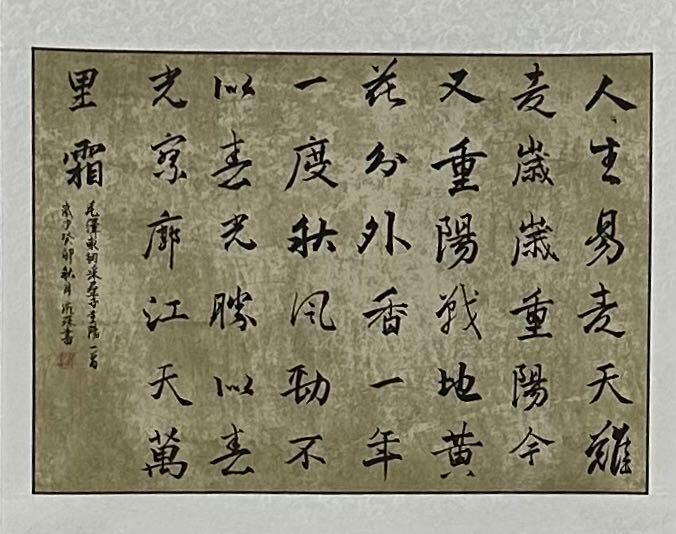 人生易老天難
老歲歲重陽今
又重陽戰地黃
花分外香一年
一度秋風勁不
似春光勝似春
光寥廓江天萬
里霜
毛澤東詞采桑子重陽一首
歲次癸卯秋月書